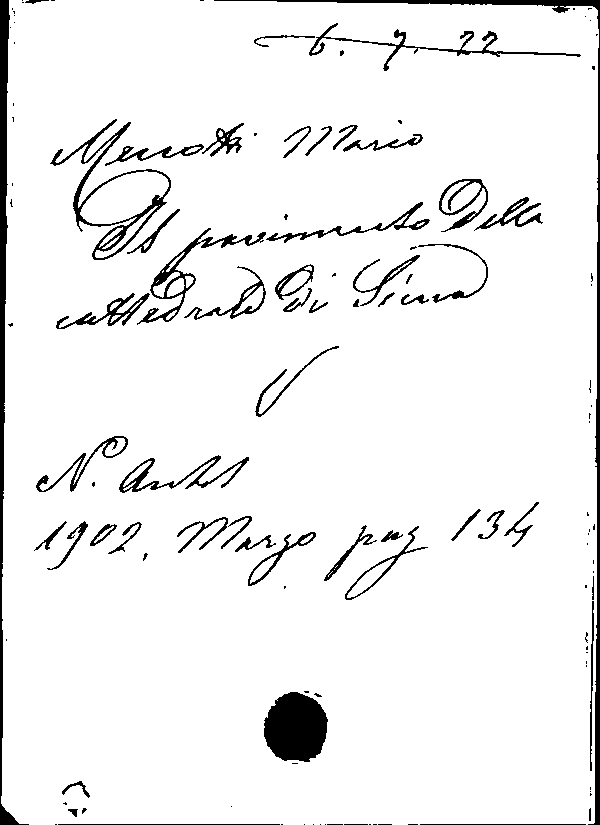 6. 7. 22
Menotti Mario
Il pavimento della
cattedrale di Siena
V
N. Antol
1902. Marzo pag 134